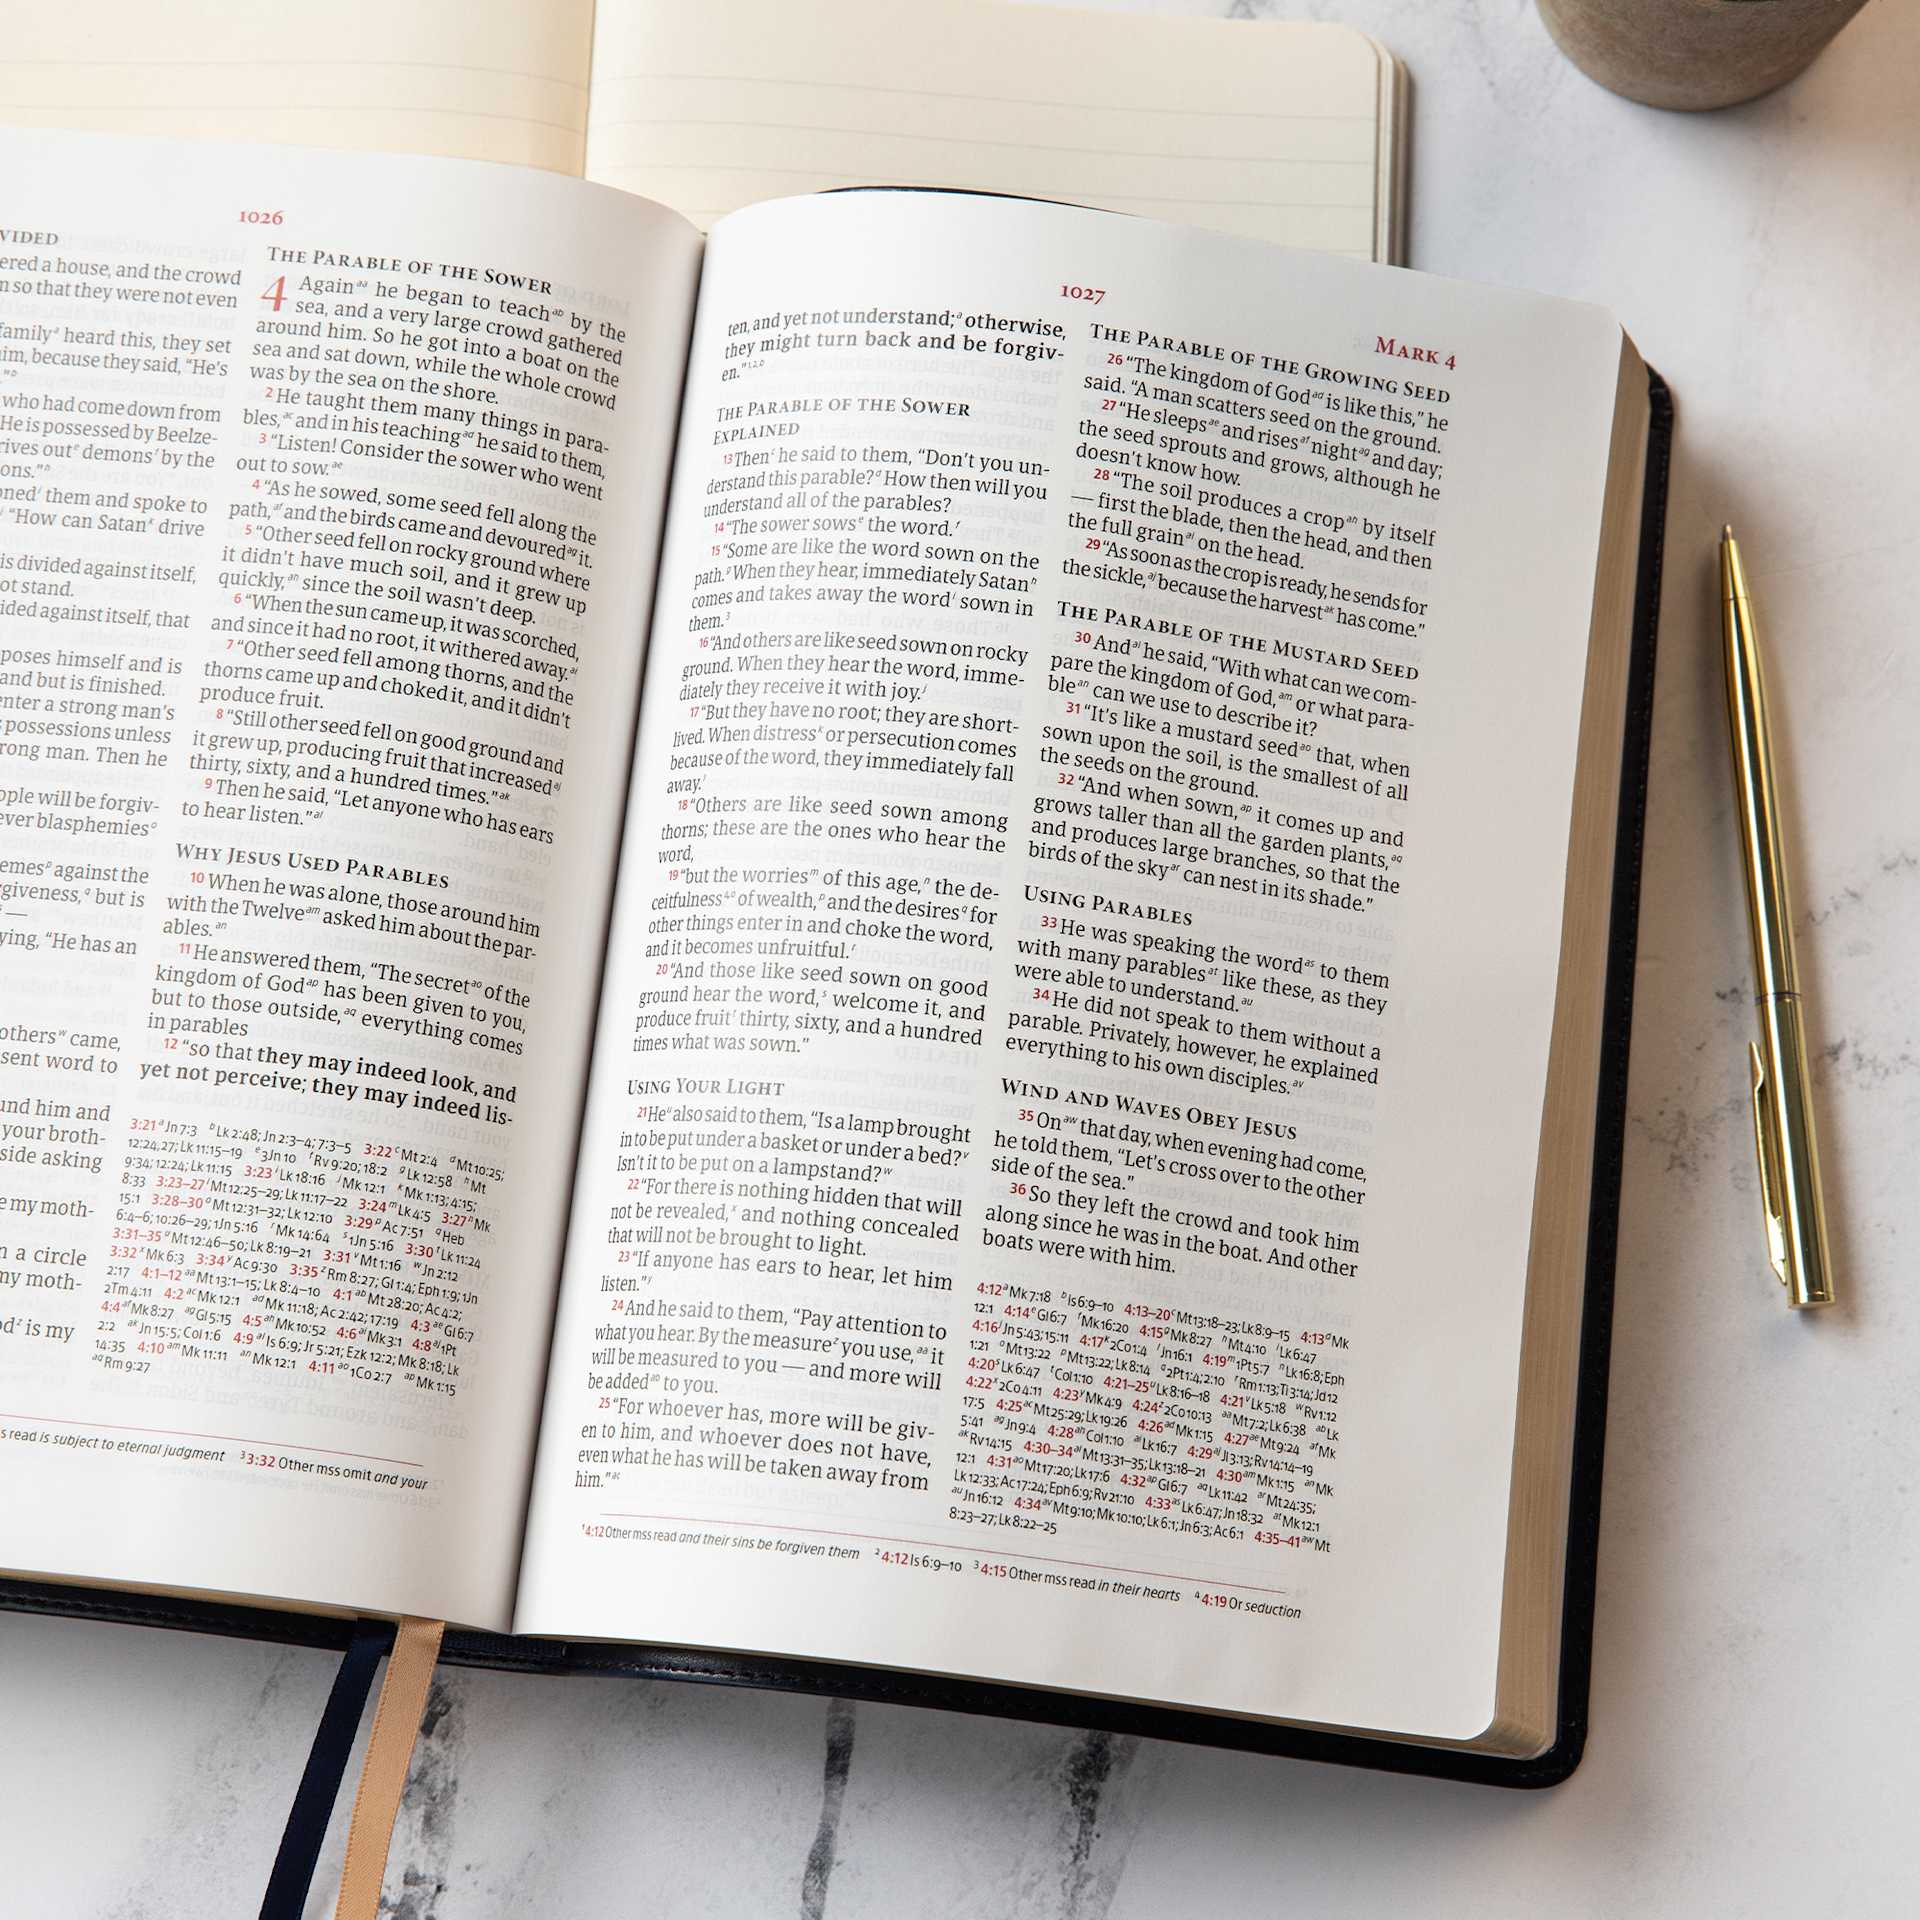 1026
VIDED
ered a house, and the crowd
so that they were not even
family a heard this, they set
im, because they said, “He’s
” b
who had come down from
“He is possessed by Beelze-
rives out e demons f by the
ons.” h
oned i them and spoke to
“How can Satan k drive
is divided against itself,
ot stand.
ided against itself, that
poses himself and is
and but is finished.
enter a strong man’s
possessions unless
rong man. Then he
ople will be forgiv-
ever blasphemies o
emes p against the
rgiveness, q but is
—
ying, “He has an
others w came,
sent word to
und him and
your broth-
side asking
e my moth-
n a circle
my moth-
od z is my
THE PARABLE OF THE SOWER
4 Again aa he began to teach ab by the
sea, and a very large crowd gathered
around him. So he got into a boat on the
sea and sat down, while the whole crowd
was by the sea on the shore.
2 He taught them many things in para-
bles, ac and in his teaching ad he said to them,
3 “Listen! Consider the sower who went
out to sow. ae
4 “As he sowed, some seed fell along the
path, af and the birds came and devoured ag it.
5 “Other seed fell on rocky ground where
it didn’t have much soil, and it grew up
quickly, ah since the soil wasn’t deep.
6 “When the sun came up, it was scorched,
and since it had no root, it withered away. ai
7 “Other seed fell among thorns, and the
thorns came up and choked it, and it didn’t
produce fruit.
8 “Still other seed fell on good ground and
it grew up, producing fruit that increased aj
thirty, sixty, and a hundred times.” ak
9 Then he said, “Let anyone who has ears
to hear listen.” al
WHY JESUS USED PARABLES
10 When he was alone, those around him
with the Twelve am asked him about the par-
ables. an
11 He answered them, “The secret ao of the
kingdom of God ap has been given to you,
but to those outside, aq everything comes
in parables
12 “so that they may indeed look, and
yet not perceive; they may indeed lis-
3:21 a Jn 7:3 b Lk 2:48; Jn 2:3–4; 7:3–5 3:22 c Mt 2:4 d Mt 10:25;
12:24,27; Lk 11:15–19 e 3Jn 10 f Rv 9:20; 18:2 g Lk 12:58 h Mt
9:34; 12:24; Lk 11:15 3:23 i Lk 18:16 j Mk 12:1 k Mk 1:13; 4:15;
8:33 3:23–27 l Mt 12:25–29; Lk 11:17–22 3:24 m Lk 4:5 3:27 n Mk
15:1 3:28–30 o Mt 12:31–32; Lk 12:10 3:29 p Ac 7:51 q Heb
6:4–6; 10:26–29; 1Jn 5:16 r Mk 14:64 s 1Jn 5:16 3:30 t Lk 11:24
3:31–35 u Mt 12:46–50; Lk 8:19–21 3:31 v Mt 1:16 w Jn 2:12
3:32 x Mk 6:3 3:34 y Ac 9:30 3:35 z Rm 8:27; Gl 1:4; Eph 1:9; 1Jn
2:17 4:1–12 aa Mt 13:1–15; Lk 8:4–10 4:1 ab Mt 28:20; Ac 4:2;
2Tm 4:11 4:2 ac Mk 12:1 ad Mk 11:18; Ac 2:42; 17:19 4:3 ae Gl 6:7
4:4 af Mk 8:27 ag Gl 5:15 4:5 ah Mk 10:52 4:6 ai Mk 3:1 4:8 aj 1Pt
2:2 ak Jn 15:5; Col 1:6 4:9 al Is 6:9; Jr 5:21; Ezk 12:2; Mk 8:18; Lk
14:35 4:10 am Mk 11:11 an Mk 12:1 4:11 ao 1Co 2:7 ap Mk 1:15
aq Rm 9:27
s read is subject to eternal judgment 3 3:32 Other mss omit and your
1027
MARK 4
ten, and yet not understand; a otherwise,
they might turn back and be forgiv-
en.” 1,2,b
THE PARABLE OF THE SOWER
EXPLAINED
13 Then c he said to them, “Don’t you un-
derstand this parable? d How then will you
understand all of the parables?
14 “The sower sows e the word. f
15 “Some are like the word sown on the
path. g When they hear, immediately Satan h
comes and takes away the word i sown in
them. 3
16 “And others are like seed sown on rocky
ground. When they hear the word, imme-
diately they receive it with joy. j
17 “But they have no root; they are short-
lived. When distress k or persecution comes
because of the word, they immediately fall
away. l
18 “Others are like seed sown among
thorns; these are the ones who hear the
word,
19 “but the worries m of this age, n the de-
ceitfulness 4,o of wealth, p and the desires q for
other things enter in and choke the word,
and it becomes unfruitful. r
20 “And those like seed sown on good
ground hear the word, s welcome it, and
produce fruit t thirty, sixty, and a hundred
times what was sown.”
USING YOUR LIGHT
21 He u also said to them, “Is a lamp brought
in to be put under a basket or under a bed? v
Isn’t it to be put on a lampstand? w
22 “For there is nothing hidden that will
not be revealed, x and nothing concealed
that will not be brought to light.
23 “If anyone has ears to hear, let him
listen.” y
24 And he said to them, “Pay attention to
what you hear. By the measure z you use, aa it
will be measured to you — and more will
be added ab to you.
25 “For whoever has, more will be giv-
en to him, and whoever does not have,
even what he has will be taken away from
him.” ac
THE PARABLE OF THE GROWING SEED
26 “The kingdom of God ad is like this,” he
said. “A man scatters seed on the ground.
27 “He sleeps ae and rises af night ag and day;
the seed sprouts and grows, although he
doesn’t know how.
28 “The soil produces a crop ah by itself
— first the blade, then the head, and then
the full grain ai on the head.
29 “As soon as the crop is ready, he sends for
the sickle, aj because the harvest ak has come.”
THE PARABLE OF THE MUSTARD SEED
30 And al he said, “With what can we com-
pare the kingdom of God, am or what para-
ble an can we use to describe it?
31 “It’s like a mustard seed ao that, when
sown upon the soil, is the smallest of all
the seeds on the ground.
32 “And when sown, ap it comes up and
grows taller than all the garden plants, aq
and produces large branches, so that the
birds of the sky ar can nest in its shade.”
USING PARABLES
33 He was speaking the word as to them
with many parables at like these, as they
were able to understand. au
34 He did not speak to them without a
parable. Privately, however, he explained
everything to his own disciples. av
WIND AND WAVES OBEY JESUS
35 On aw that day, when evening had come,
he told them, “Let’s cross over to the other
side of the sea.”
36 So they left the crowd and took him
along since he was in the boat. And other
boats were with him.
4:12 a Mk 7:18 b Is 6:9–10 4:13–20 c Mt 13:18–23; Lk 8:9–15 4:13 d Mk
12:1 4:14 e Gl 6:7 f Mk 16:20 4:15 g Mk 8:27 h Mt 4:10 i Lk 6:47
4:16 j Jn 5:43; 15:11 4:17 k 2Co 1:4 l Jn 16:1 4:19 m 1Pt 5:7 n Lk 16:8; Eph
1:21 o Mt 13:22 p Mt 13:22; Lk 8:14 q 2Pt 1:4; 2:10 r Rm 1:13; Ti 3:14; Jd 12
4:20 s Lk 6:47 t Col 1:10 4:21–25 u Lk 8:16–18 4:21 v Lk 5:18 w Rv 1:12
4:22 x 2Co 4:11 4:23 y Mk 4:9 4:24 z 2Co 10:13 aa Mt 7:2; Lk 6:38 ab Lk
17:5 4:25 ac Mt 25:29; Lk 19:26 4:26 ad Mk 1:15 4:27 ae Mt 9:24 af Mk
5:41 ag Jn 9:4 4:28 ah Col 1:10 ai Lk 16:7 4:29 aj Jl 3:13; Rv 14:14–19
ak Rv 14:15 4:30–34 al Mt 13:31–35; Lk 13:18–21 4:30 am Mk 1:15 an Mk
12:1 4:31 ao Mt 17:20; Lk 17:6 4:32 ap Gl 6:7 aq Lk 11:42 ar Mt 24:35;
Lk 12:33; Ac 17:24; Eph 6:9; Rv 21:10 4:33 as Lk 6:47; Jn 18:32 at Mk 12:1
au Jn 16:12 4:34 av Mt 9:10; Mk 10:10; Lk 6:1; Jn 6:3; Ac 6:1 4:35–41 aw Mt
8:23–27; Lk 8:22–25
1 4:12 Other mss read and their sins be forgiven them 2 4:12 Is 6:9–10 3 4:15 Other mss read in their hearts 4 4:19 Or seduction